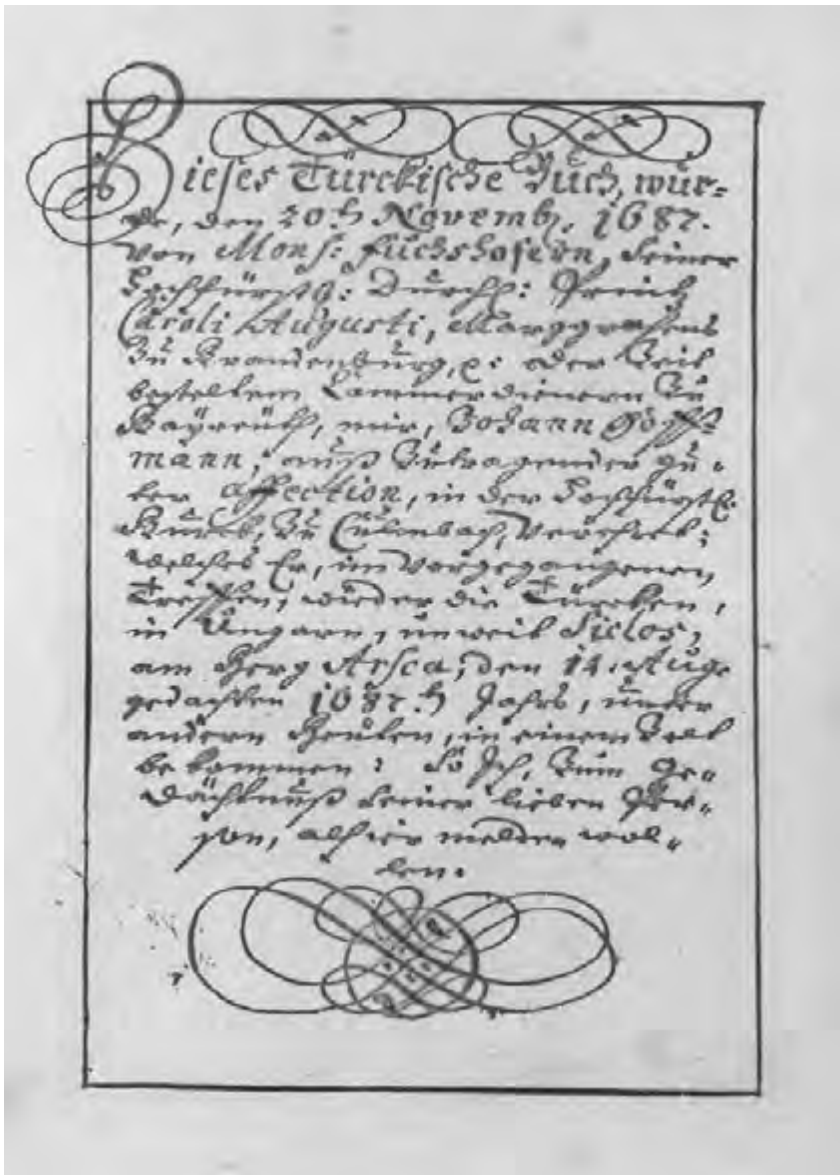 Dieses Türckische Buch, wur-
de, den 20.t. Novemb. 1687.
von Mons: Fuchshofern, Seiner
Hochfürstl: Durchl: Printz
Caroli Augusti, Marggrafens
zu Brandenburg, ꝛc: der Zeit
bestelltem Cammerdienern zu
Bayreuth, mir, Johann Hoff-
mann, auß zutragender gu-
ter affection, in der Hochfürstl.
Burck, zu Culmbach, verehret;
welches Er, im vorgegangenen
Treffen, wieder die Türcken,
in Ungarn, unweit Siclos,
am Berg Arsca, den 12. Aug.
gedachten 1687.t. Jahrs, unter
andern Beuten, in einem Zelt
bekommen: So Ich, zum Ge-
dächtnuß seiner lieben Per-
son, alhier melden wol-
len.